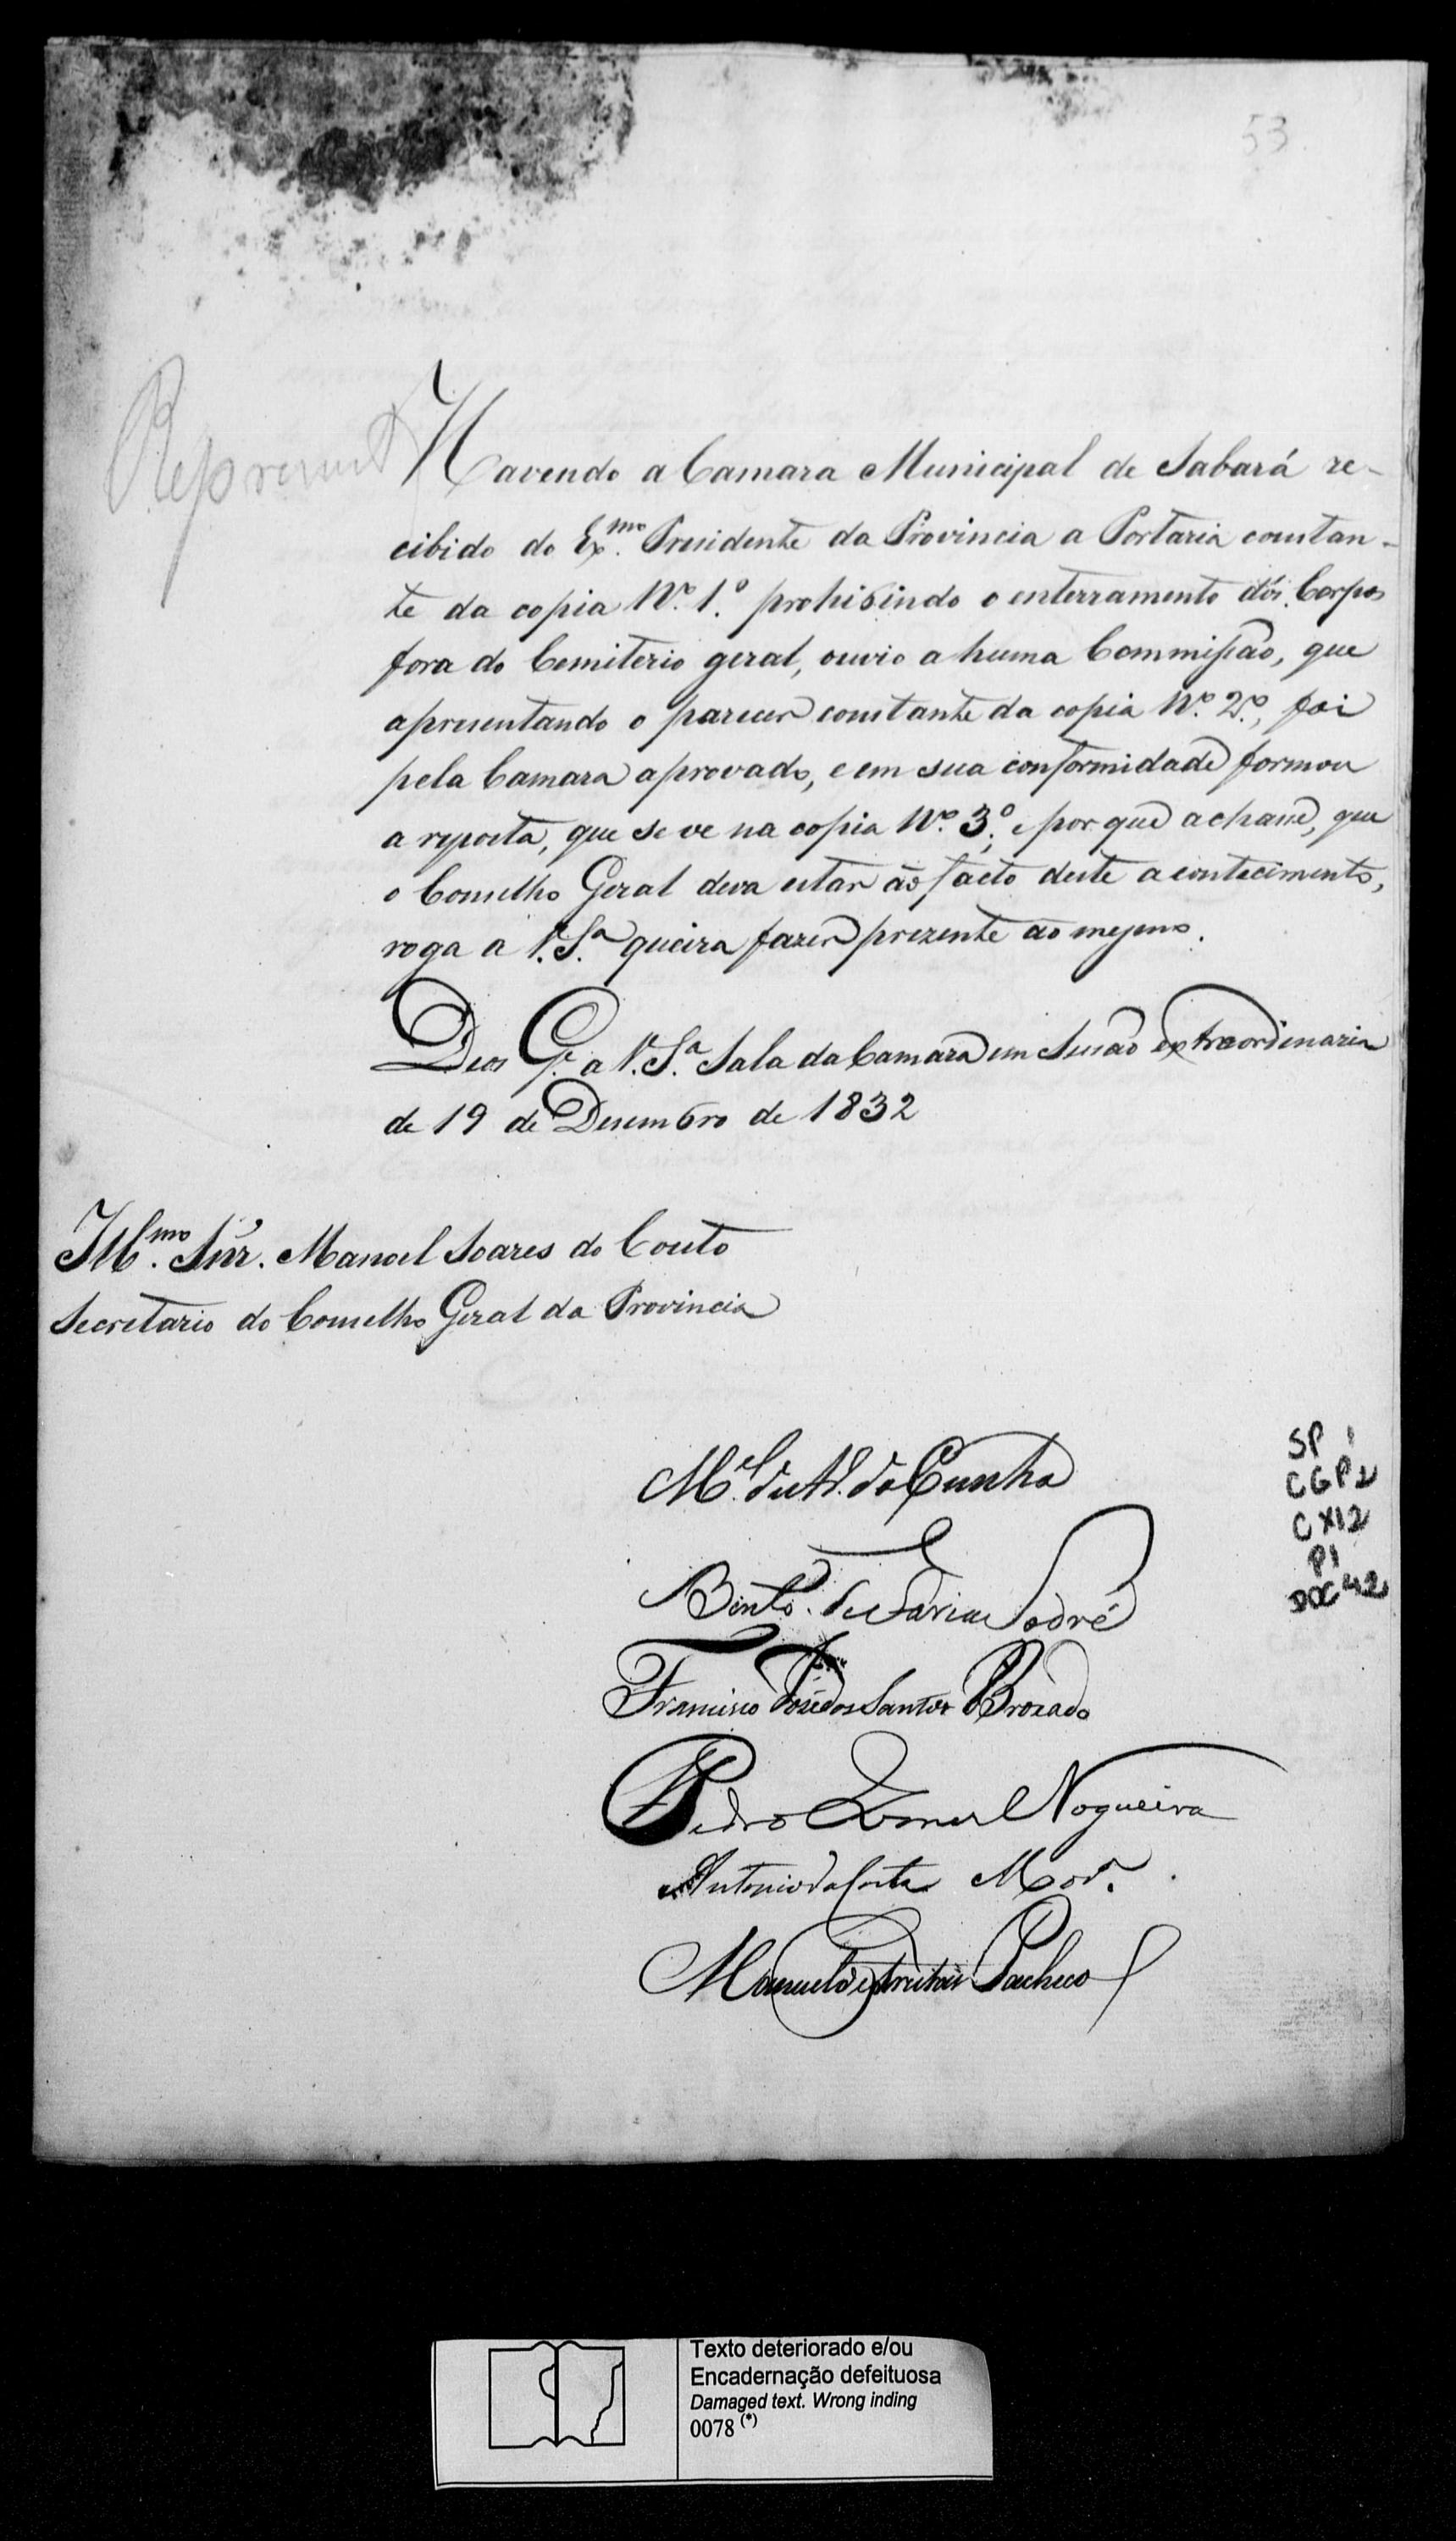 53
Havendo a Camara Municipal de Sabará re-
cibido do Exmo. Presidente da Provincia a Portaria constan-
te da copia No. 1.º prohibindo o enterramento dós Corpos
fora do Cemiterio geral, ouvio a huma Commissão, que
apresentando o parecer constante da copia No. 2º, foi
pela Camara aprovado, e em sua conformidade formou
a resposta, que se ve na copia No. 3º; e por que achasse, que
o Conselho Geral deva estar ao facto deste acontecimento,
roga a V.Sª queira fazer prezente ao mesmo.
Deos Ge. a V.Sª Sala da Camara em Sessão extraordinaria
de 19 de Desembro de 1832
Illmo. Snr. Manoel Soares do Couto
Secretario do Conselho Geral da Provincia
Mel. da Cunha
Bento de Faria Sodré
Francisco Jose dos Santos Brocado
Pedro Gomes Nogueira
Antonio da Costa Morª.
Manuel de Freitas Pacheco
SP 1
CGP 2
CX12
P1
DOC 42
Texto deteriorado e/ou
Encadernação defeituosa
Damaged text. Wrong inding
0078 (*)